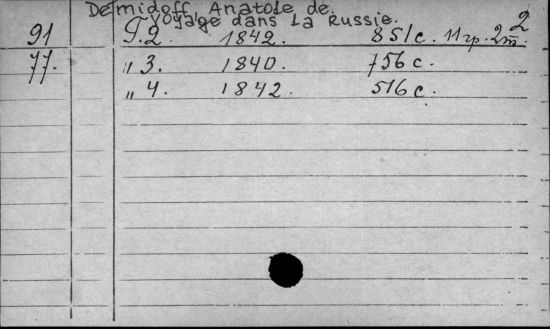 Demidoff, Anatole de.
Voyage dans la Russie.
2
91 Т.2. 1842. 851с. 11гр. 2т.
77. „ 3. 1840. 756 с.
„ 4. 1842. 516 с.